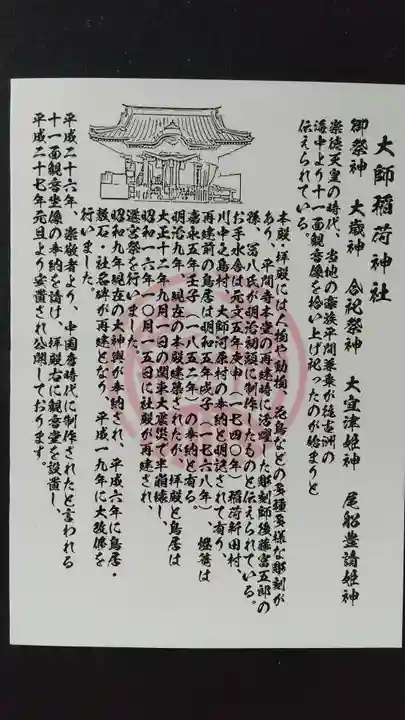 大師稲荷神社
御祭神　大歳神　合祀祭神　大宜津姫神　尾船豊請姫神
崇徳天皇の時代、当地の豪族平間兼乗が経宝洲の
海中より十一面観音像を拾い上げ祀ったのが始まりと
伝えられている。
本殿・拝殿には人物や動物、花鳥などの多種多様な彫刻が
あり、平間寺本堂の再建時に活躍した彫刻師後藤富五郎の
孫、富八氏が明治初頭に制作したものと伝えられている。
お手水舎は元文五年庚申（一七四〇年）稲荷新田村、
川中之島村、大師河原村の奉納と明記されて有り
再建前の鳥居は明和五年戊子（一七六八年）、燈篭は
嘉永五年壬子（一八五二年）の奉納と有る。
明治九年、現在の本殿建築されたが、拝殿と鳥居は
大正十二年九月一日の関東大震災で半崩壊し、
昭和一六年一〇月一五日に社殿が再建され、
遷宮祭を行いました。
昭和九年現在の大神輿が奉納され、平成六年に鳥居・
敷石・社名碑が再建となり、平成一九年に大改修を
行いました。
平成二十六年、崇敬者より、中国唐時代に制作されたと言われる
十一面観音坐像の奉納を請け、拝殿右に観音堂を設置し、
平成二十七年元旦より安置され公開しております。